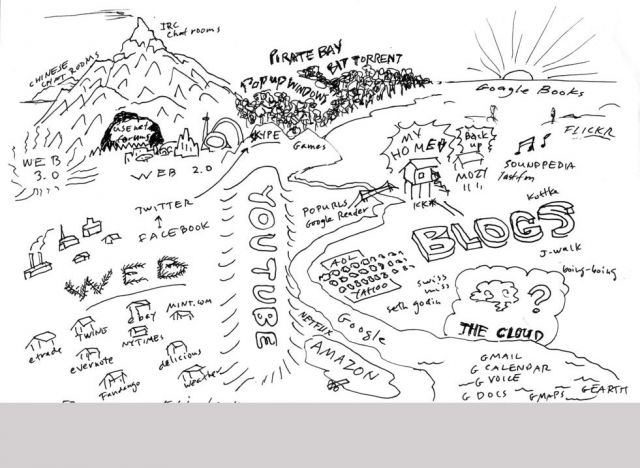 IRC
Chat rooms
CHINESE
CHAT ROOMS
PIRATE BAY
BIT TORRENT
POP UP WINDOWS
GOOGLE BOOKS
USENET
forums
SKYPE
Games
MY
HOME
Back
up
MOZY
FLICKR
SOUNDPEDIA
Last.fm
WEB
3.0
WEB 2.0
TWITTER
FACEBOOK
YOUTUBE
POPURLS
Google Reader
KK*
BLOGS
Kottke
J-walk
boing-boing
WEB
AOL
YAHOO
swiss
miss
seth godin
?
THE CLOUD
ebay
MINT.COM
etrade
TWINE
NYTIMES
evernote
delicious
Fandango
weather
NETFLIX
Google
AMAZON
GMAIL
G CALENDAR
G VOICE
G DOCS
GMAPS
GEARTH